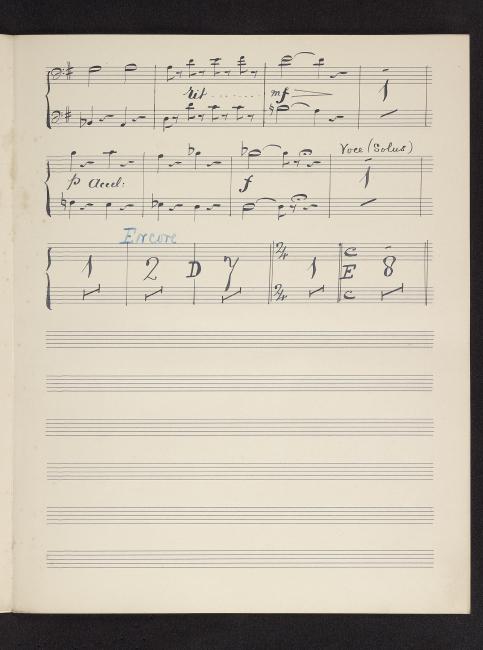 rit
mf
Voce (Solus)
p Accel:
f
1
Encore
2/4 C
1 2 D 7 1 E 8
2/4 C